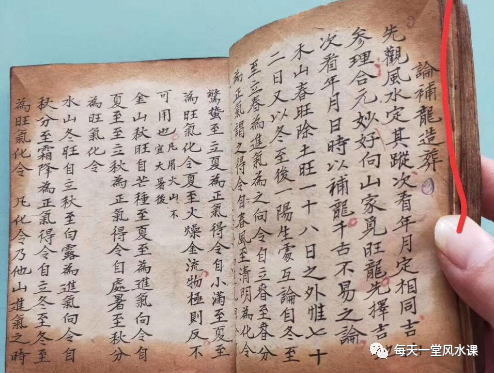 論補龍造葬
先觀風水定其蹤次看年月定相同吉
參理合元妙好向山家覓旺龍先擇吉
次看年月日時以補龍千古不易之論
木山春旺除土旺一十八日之外惟七十
二日又以冬至後一陽生處互論自冬至
至立春為進氣為之向令自立春至春分
為正氣謂之得令自春風至清明為化令
驚蟄至立夏為正氣得令自小滿至夏至
為旺氣化令夏至火燥金流物極則反不
可用也 凡眉火山不宜大暑後
金山秋旺自芒種至夏至為進氣向令自
夏至至立秋為正氣得令自處暑至秋分
為旺氣化令
水山冬旺自立秋至白露為進氣向令自
秋分至霜降為正氣得令自立冬至冬至
為旺氣化令 凡化令乃他山進氣之時
每天一堂风水课